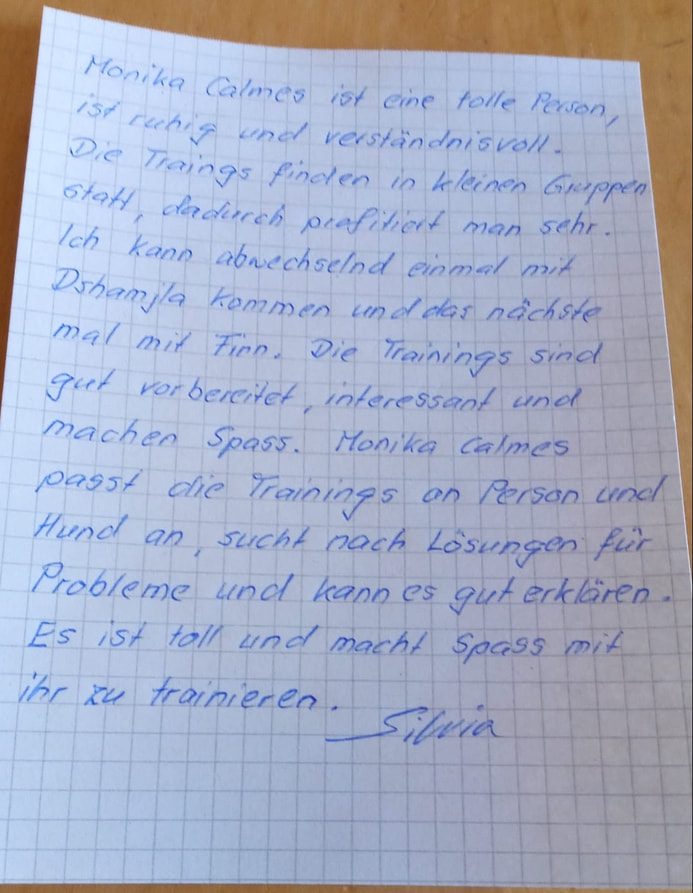 Monika Calmes ist eine tolle Person,
ist ruhig und verständnisvoll.
Die Traings finden in kleinen Gruppen
statt, dadurch profitiert man sehr.
Ich kann abwechselnd einmal mit
Dshamjla kommen und das nächste
mal mit Finn. Die Trainings sind
gut vorbereitet, interessant und
machen Spass. Monika Calmes
passt die Trainings an Person und
Hund an, sucht nach Lösungen für
Probleme und kann es gut erklären.
Es ist toll und macht Spass mit
ihr zu trainieren.
Silvia